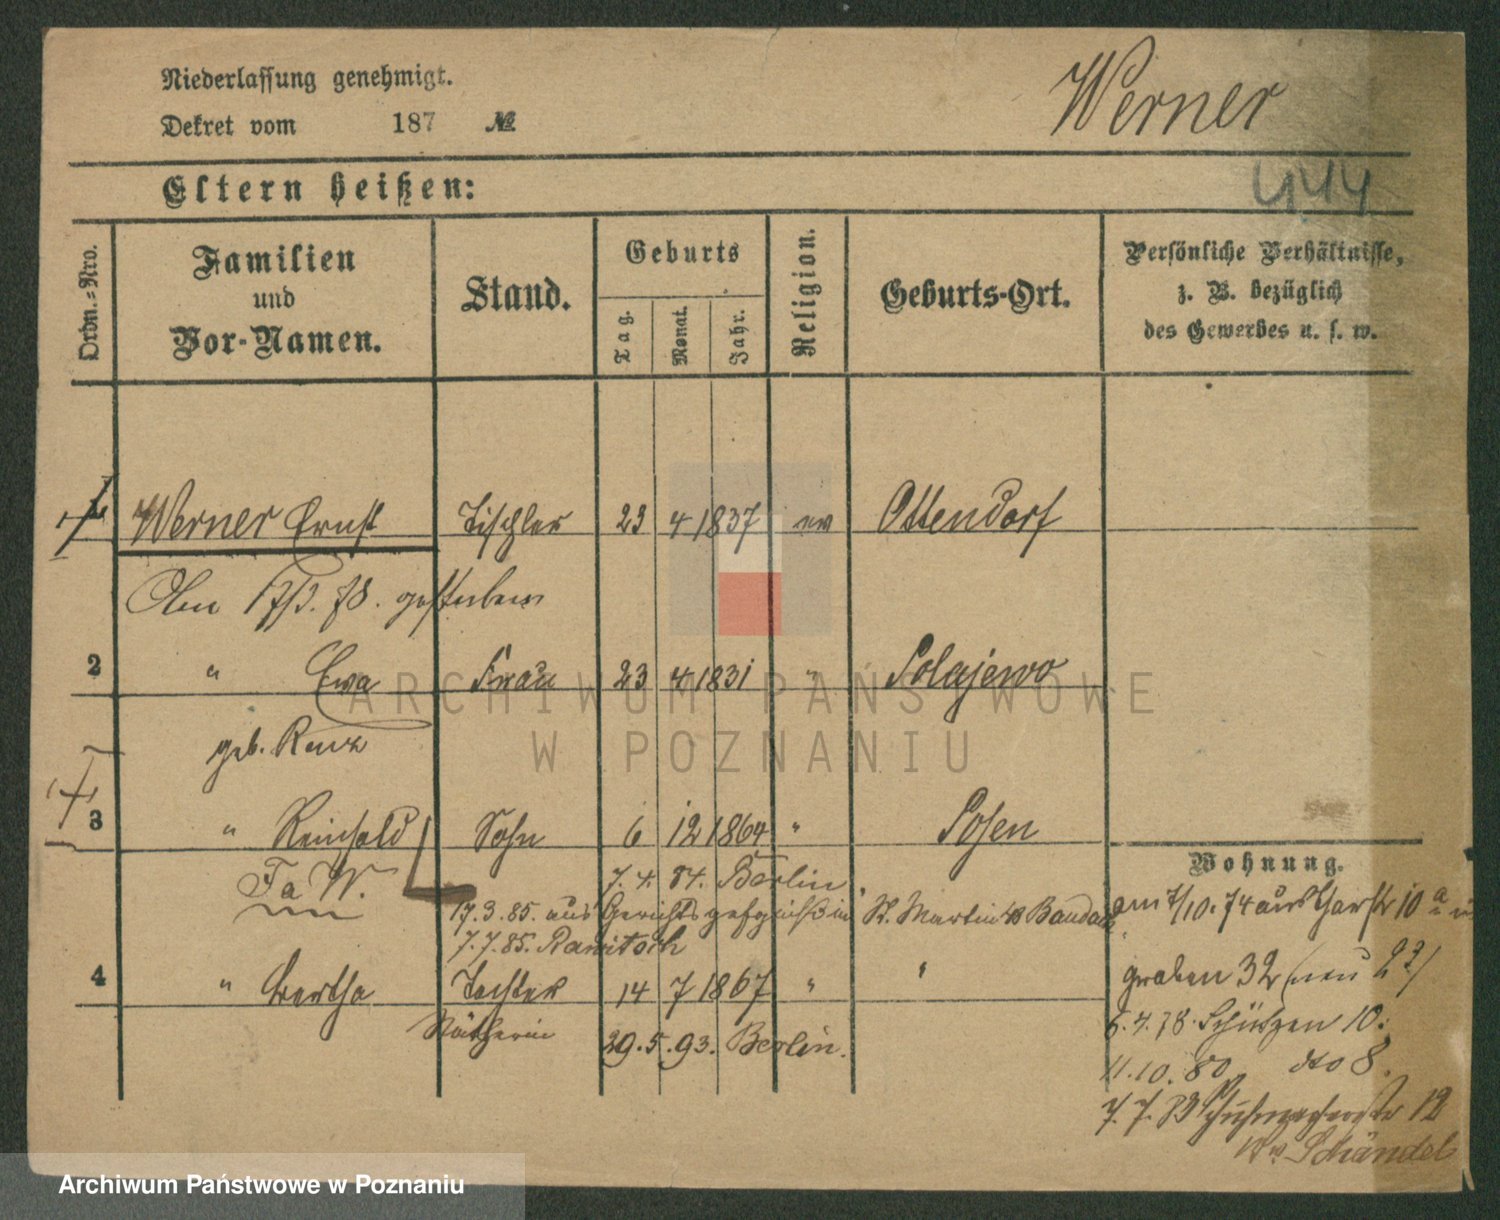 Niederlassung genehmigt.
Dekret vom 187 №
Werner
Eltern heißen:
444
Ordn.=Nro.
Familien
und
Vor-Namen.
Stand.
Geburts
Tag.
Monat.
Jahr.
Religion.
Geburts-Ort.
Persönliche Verhältnisse,
z. B. bezüglich
des Gewerbes u. s. w.
Werner Ernst Tischler 23 4 1837 ev Ottendorf
gestorben
2 " Ewa Frau 23 4 1831 " Polajewo
geb. Renz
3 " Reinhold Sohn 6 12 1864 " Posen
Fa W.
7. 4. 84. Berlin
17.3.85. aus Gerichtsgefgniß in St. Martin
7.7.85. Rawitsch
4 " Bertha Tochter 14 7 1867 " "
Nätherin 29.5.93. Berlin.
Wohnung.
am 7/10.74 aus 10 a
graben 32 (neu
6.4.78. Schützen 10.
11.10.80 dto 8.
7.7.83 Schuhmacherstr 12
Schändel
ARCHIWUM PAŃSTWOWE
W POZNANIU
Archiwum Państwowe w Poznaniu